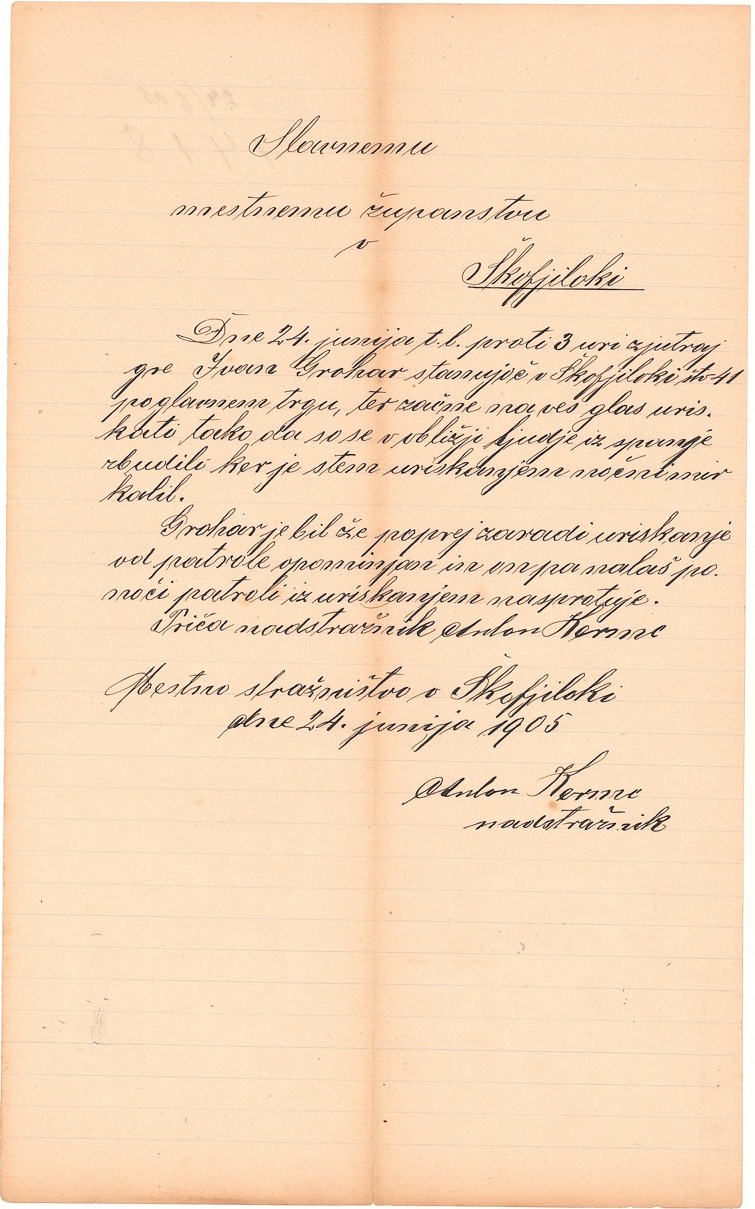 Slavnemu
mestnemu županstvu
v
Škofjiloki
Dne 24. junija t.l. proti 3 uri zjutraj
gre Ivan Grohar stanujoč v Škofjiloki št. 41
poglavnem trgu, ter začne na ves glas uris-
kati tako da so se v obližji ljudje iz spanje
zbudili ker je stem uriskanjem nočni mir
kalil.
Grohar je bil že poprej zaradi uriskanje
od patrole opominjan in on pa nalaš po-
noči patroli iz uriskanjem nasprotuje.
Priča nadstražnik Anton Kermc
Mestno stražništvo v Škofjiloki
dne 24. junija 1905
Anton Kermc
nadstražnik